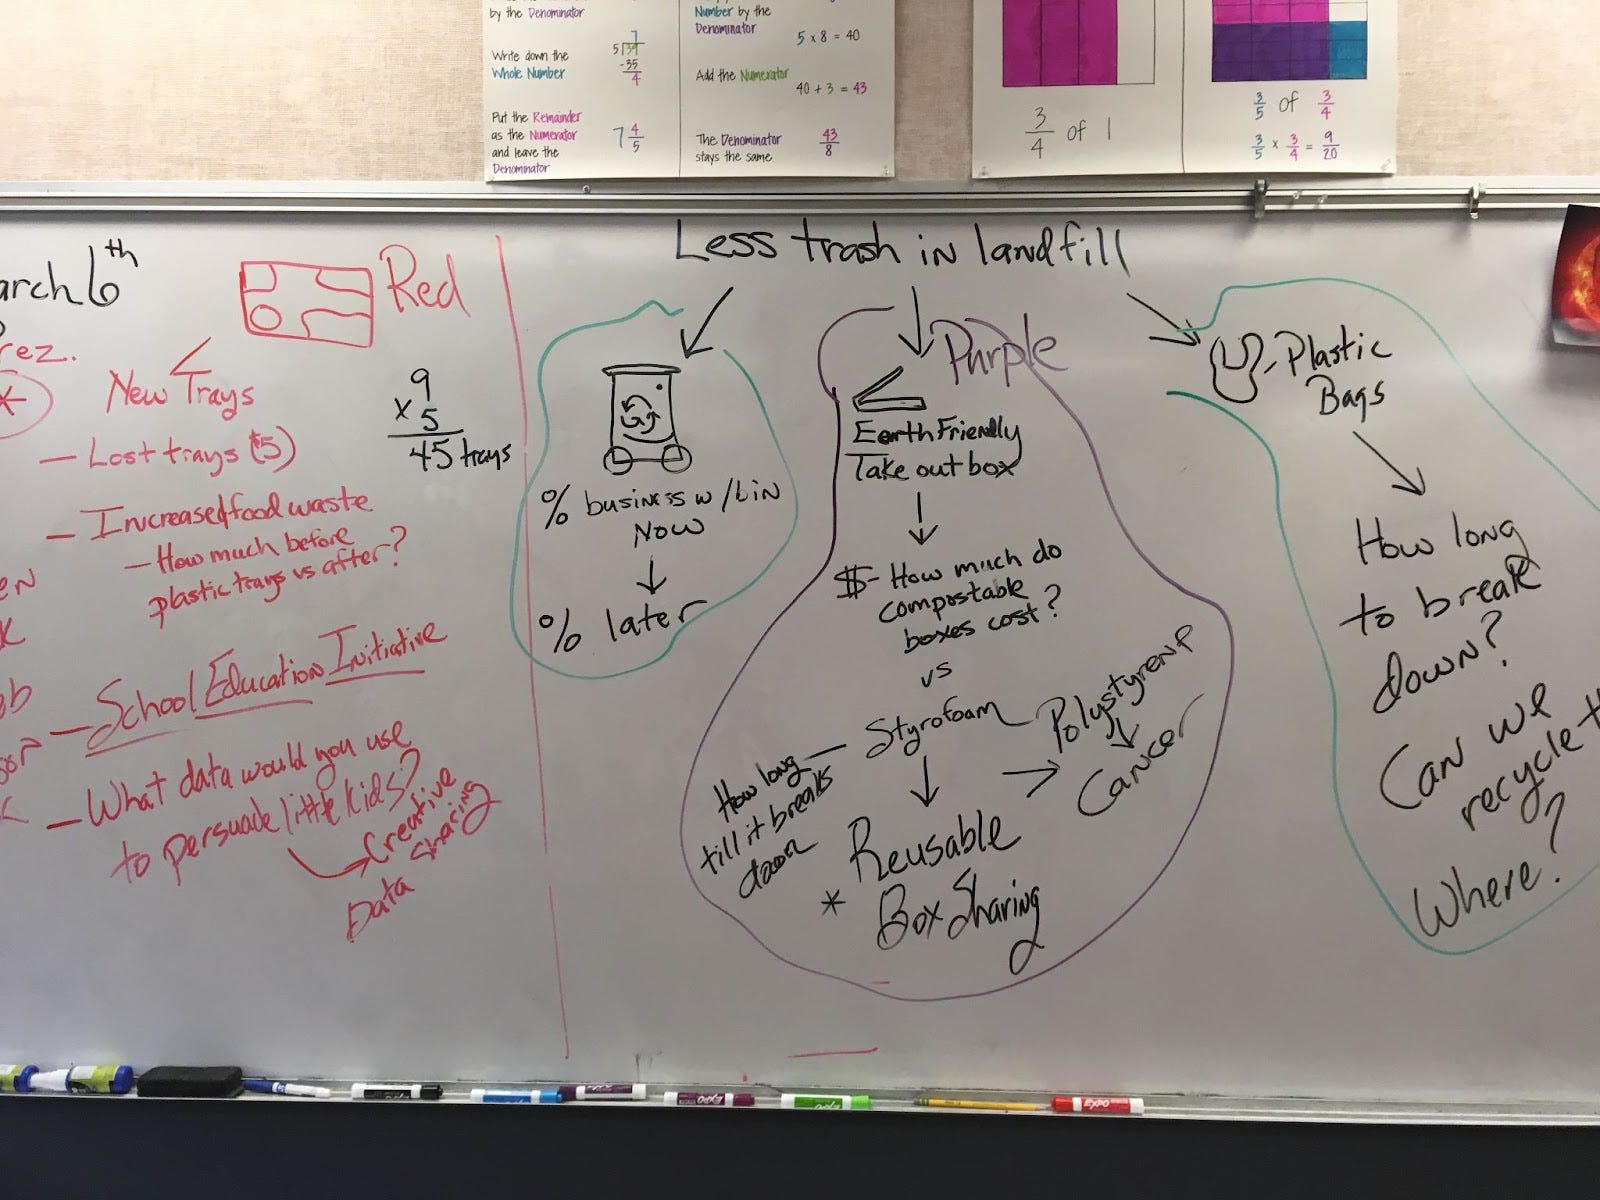 by the Denominator
Write down the
Whole Number
7
5 39
-35
4
Put the Remainder
as the Numerator
and leave the
Denominator
7 4/5
Number by the
Denominator
5 x 8 = 40
Add the Numerator
40 + 3 = 43
The Denominator
stays the same
43/8
3/4 of 1
3/5 of 3/4
3/5 x 3/4 = 9/20
arch 6th
rez.
*
Red
New Trays
- Lost trays (5)
- Increased food waste
- How much before
plastic trays vs after?
- School Education Initiative
- What data would you use
to persuade little kids?
Creative
Data Sharing
9
x 5
45 trays
Less trash in landfill
% business w/bin
Now
% later
Purple
Earth Friendly
Take out box
$ - How much do
compostable
boxes cost?
vs
Styrofoam
How long
till it breaks
down
Polystyrene
Cancer
* Reusable
Box Sharing
- Plastic
Bags
How long
to break
down?
Can we
recycle
Where?
EXPO
EXPO
EXPO